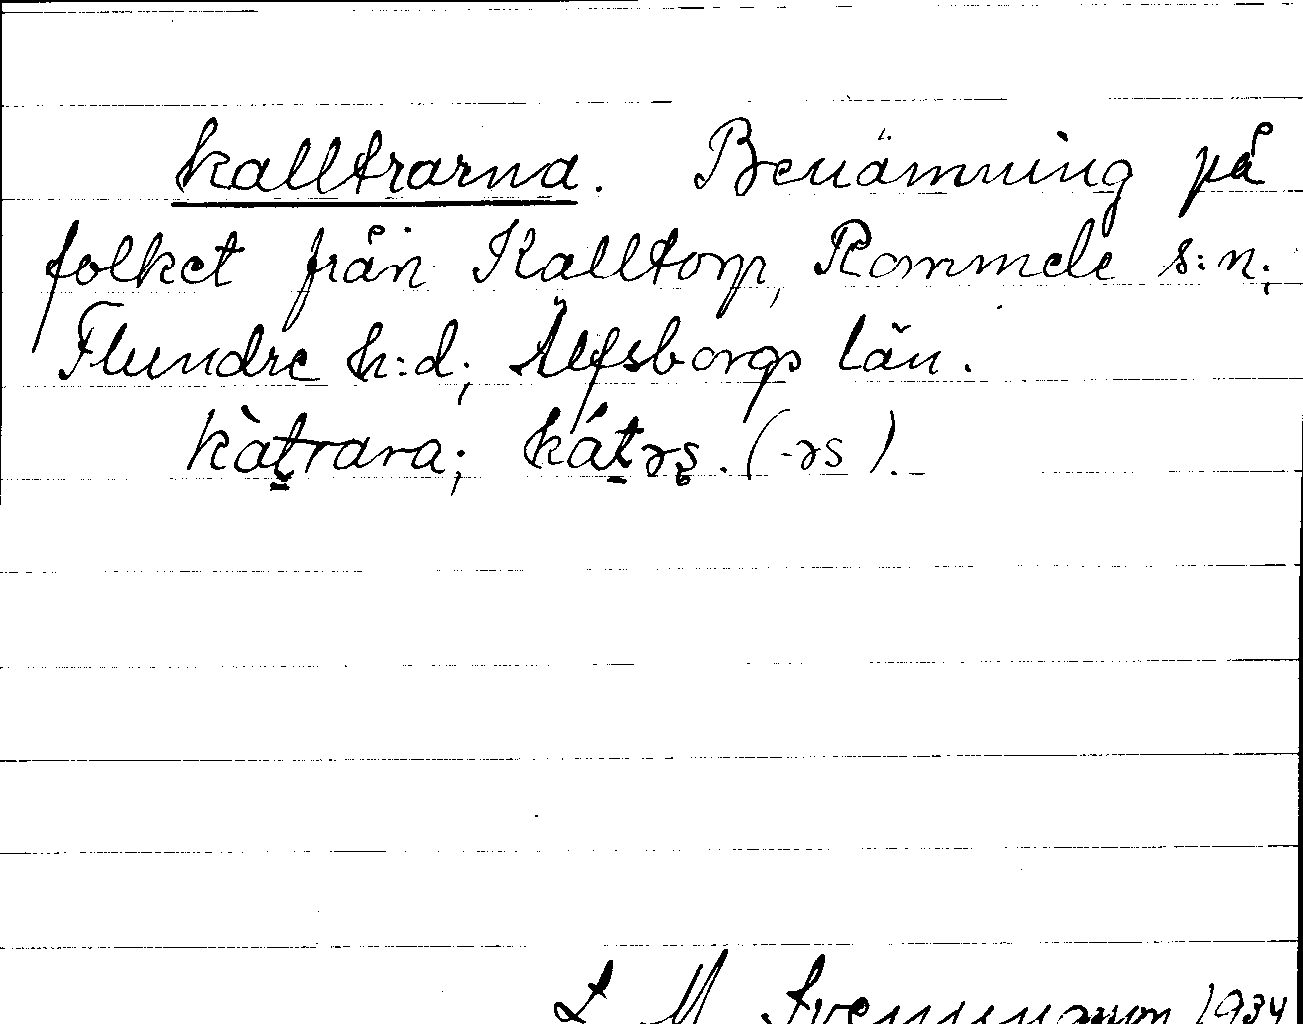 kalltrarna. Benämning på
folket från Kalltorp, Rommele s:n;
Flundre h:d; Älfsborgs län.
kàt̠rara; kát̠əʂ. (-əs).
L M Svenungsson 1934